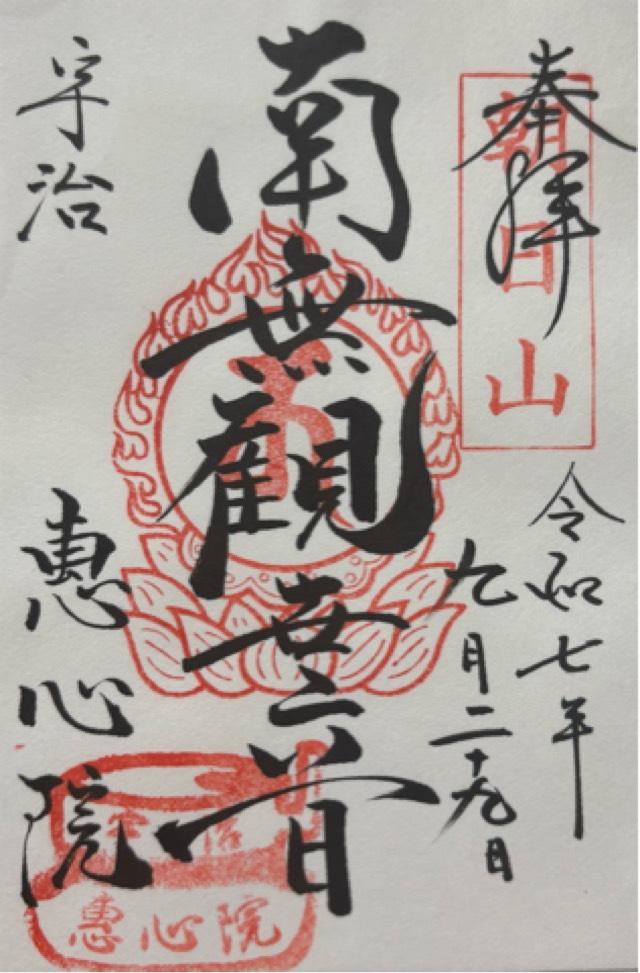 奉拝
朝日山
令和七年
九月二十九日
南無觀世音
宇治
恵心院
宇治
惠心院